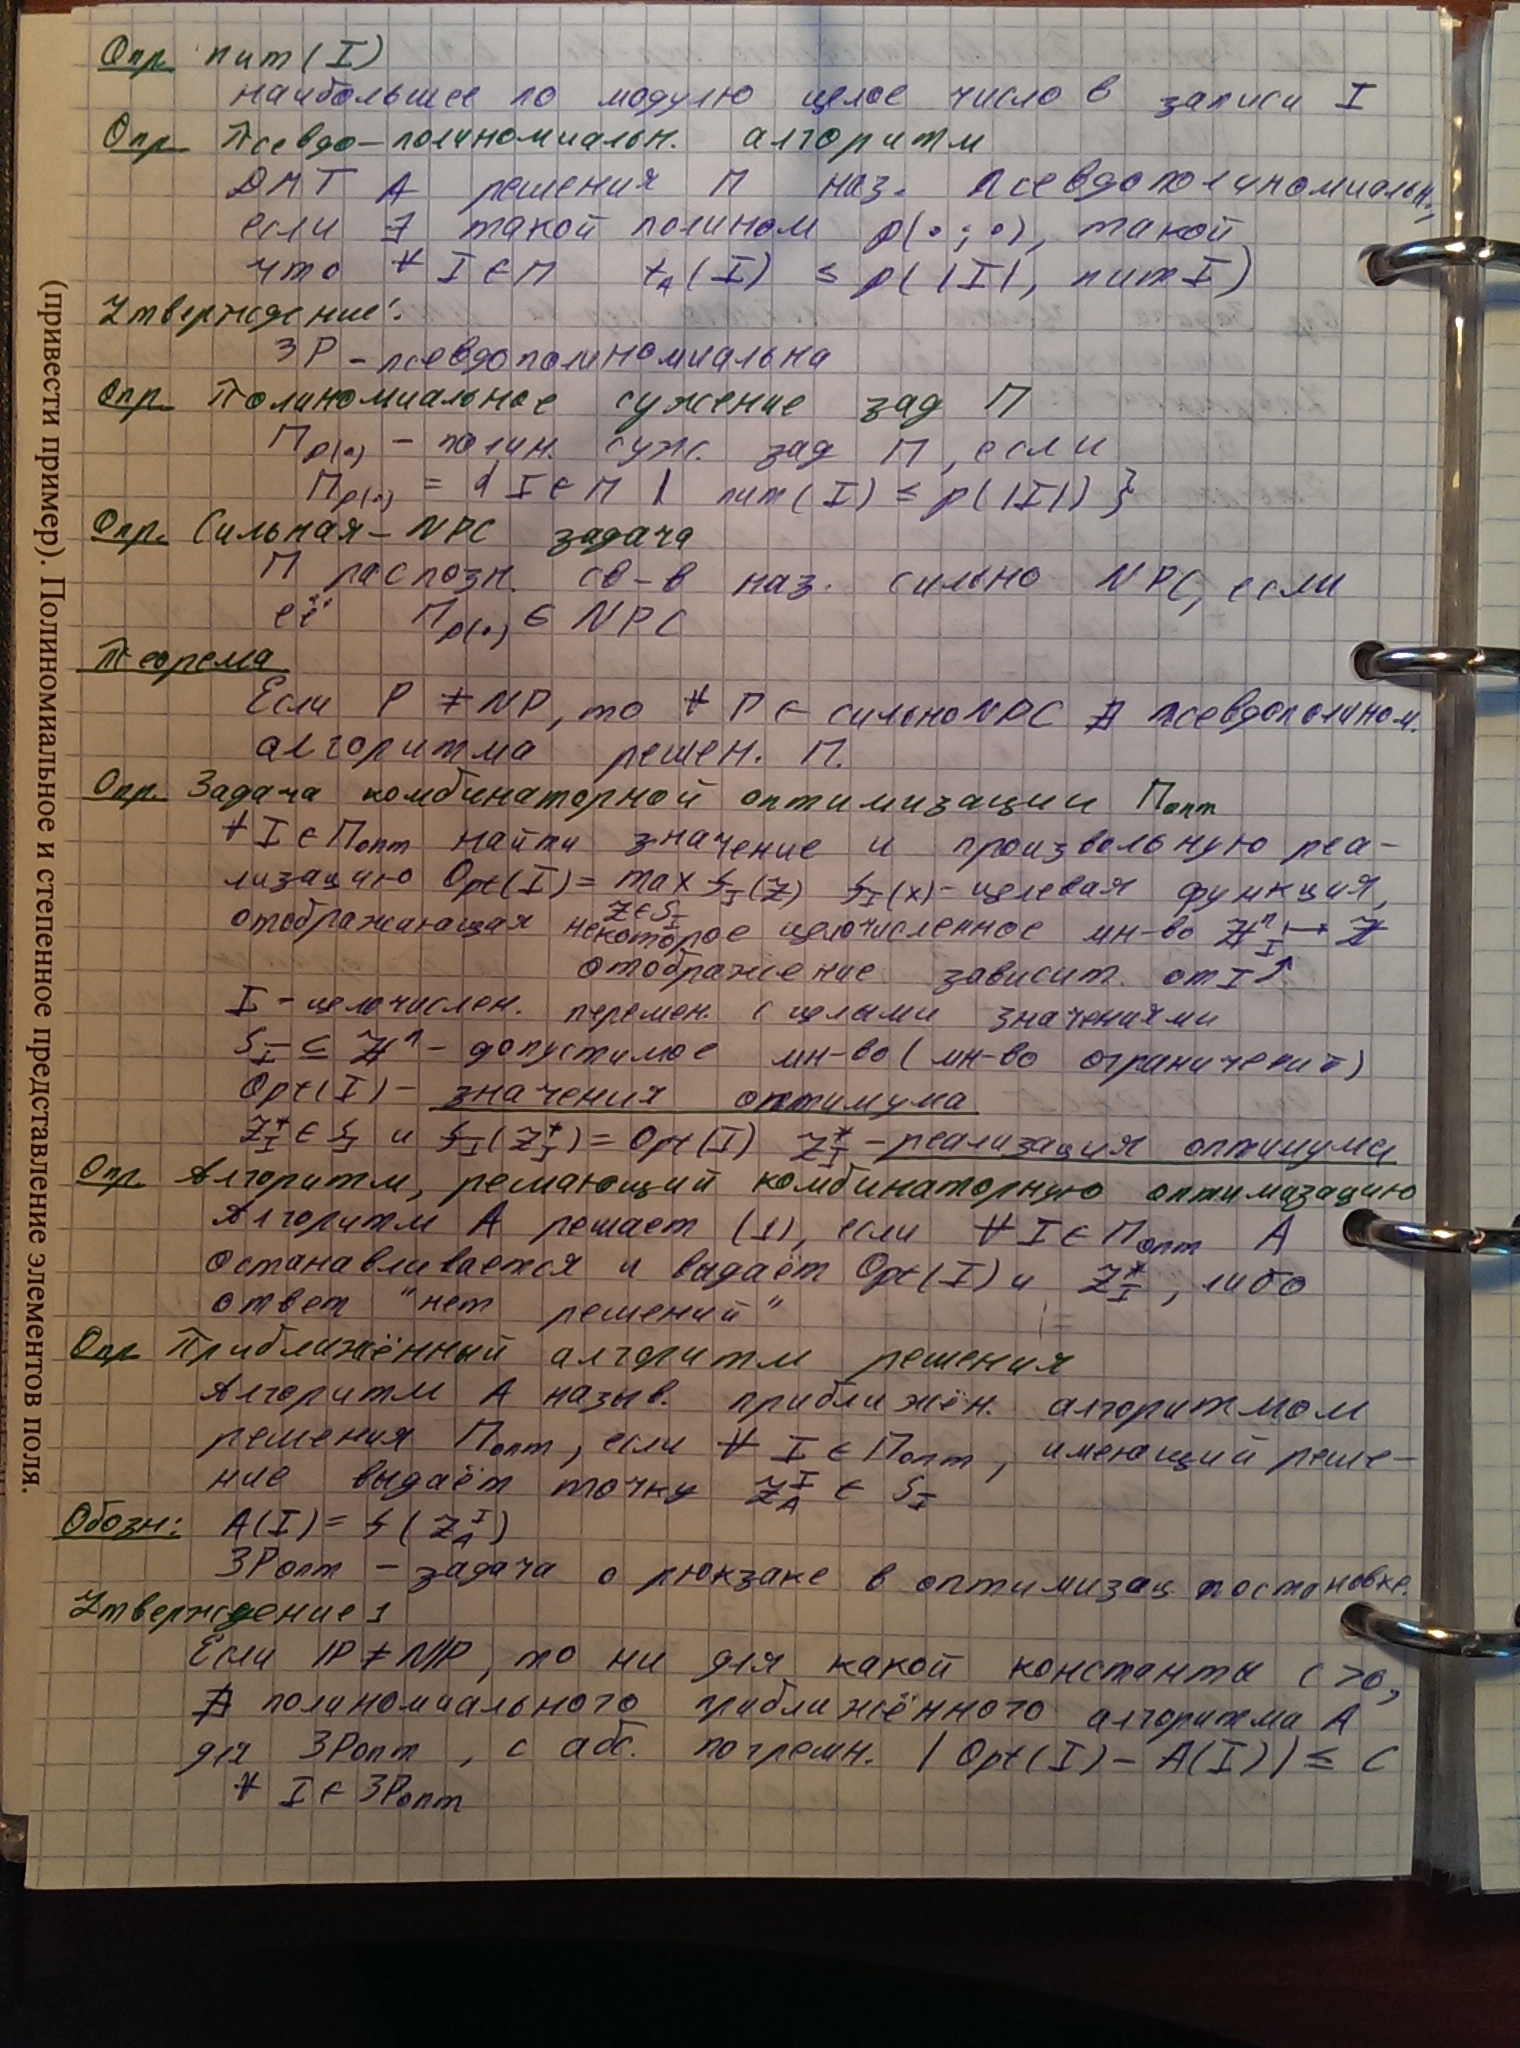 Опр. num(I)
наибольшее по модулю целое число в записи I
Опр. Псевдо-полиномиальн. алгоритм
ДМТ A решения П наз. псевдополиномиальн.,
если ∃ такой полином p(•;•), такой
что ∀ I ∈ П t_A(I) ≤ p(|I|, num I)
Утверждение:
ЗР - псевдополиномиальна
Опр. Полиномиальное сужение зад П
П_p(•) - полин. суж. зад П, если
П_p(•) = { I ∈ П | num(I) ≤ p(|I|) }
Опр. Сильная - NPC задача
П распозн. св-в наз. сильно NPC, если
её П_p(•) ∈ NPC
Теорема
Если P ≠ NP, то ∀ П ∈ сильноNPC ∄ псевдополином.
алгоритма решен. П.
Опр. Задача комбинаторной оптимизации Попт
∀ I ∈ Попт найти значение и произвольную реа-
лизацию Opt(I) = max f_I(z) f_I(x) - целевая функция,
z∈S_I
отображающая некоторое целочисленное мн-во ℤ^n_I ↦ ℤ
отображение зависит от I ↑
I - целочислен. перемен. с целыми значениями
S_I ⊆ ℤ^n - допустимое мн-во (мн-во ограничений)
Opt(I) - значения оптимума
z*_I ∈ S_I и f_I(z*_I) = Opt(I) z*_I - реализация оптимума
Опр. Алгоритм, решающий комбинаторную оптимизацию
Алгоритм A решает (1), если ∀ I ∈ Попт A
останавливается и выдаёт Opt(I) и z*_I, либо
ответ "нет решений"
Опр Приближённый алгоритм решения
Алгоритм A назыв. приближён. алгоритмом
решения Попт, если ∀ I ∈ Попт, имеющий реше-
ние выдаёт точку z^I_A ∈ S_I
Обозн: A(I) = f(z^I_A)
ЗРопт - задача о рюкзаке в оптимизац постановке.
Утверждение 1
Если ℙ ≠ ℕℙ, то ни для какой константы C>0,
∄ полиномиального приближённого алгоритма A
для ЗРопт, с абс. погрешн. |Opt(I) - A(I)| ≤ C
∀ I ∈ ЗРопт
(привести пример). Полиномиальное и степенное представление элементов поля.